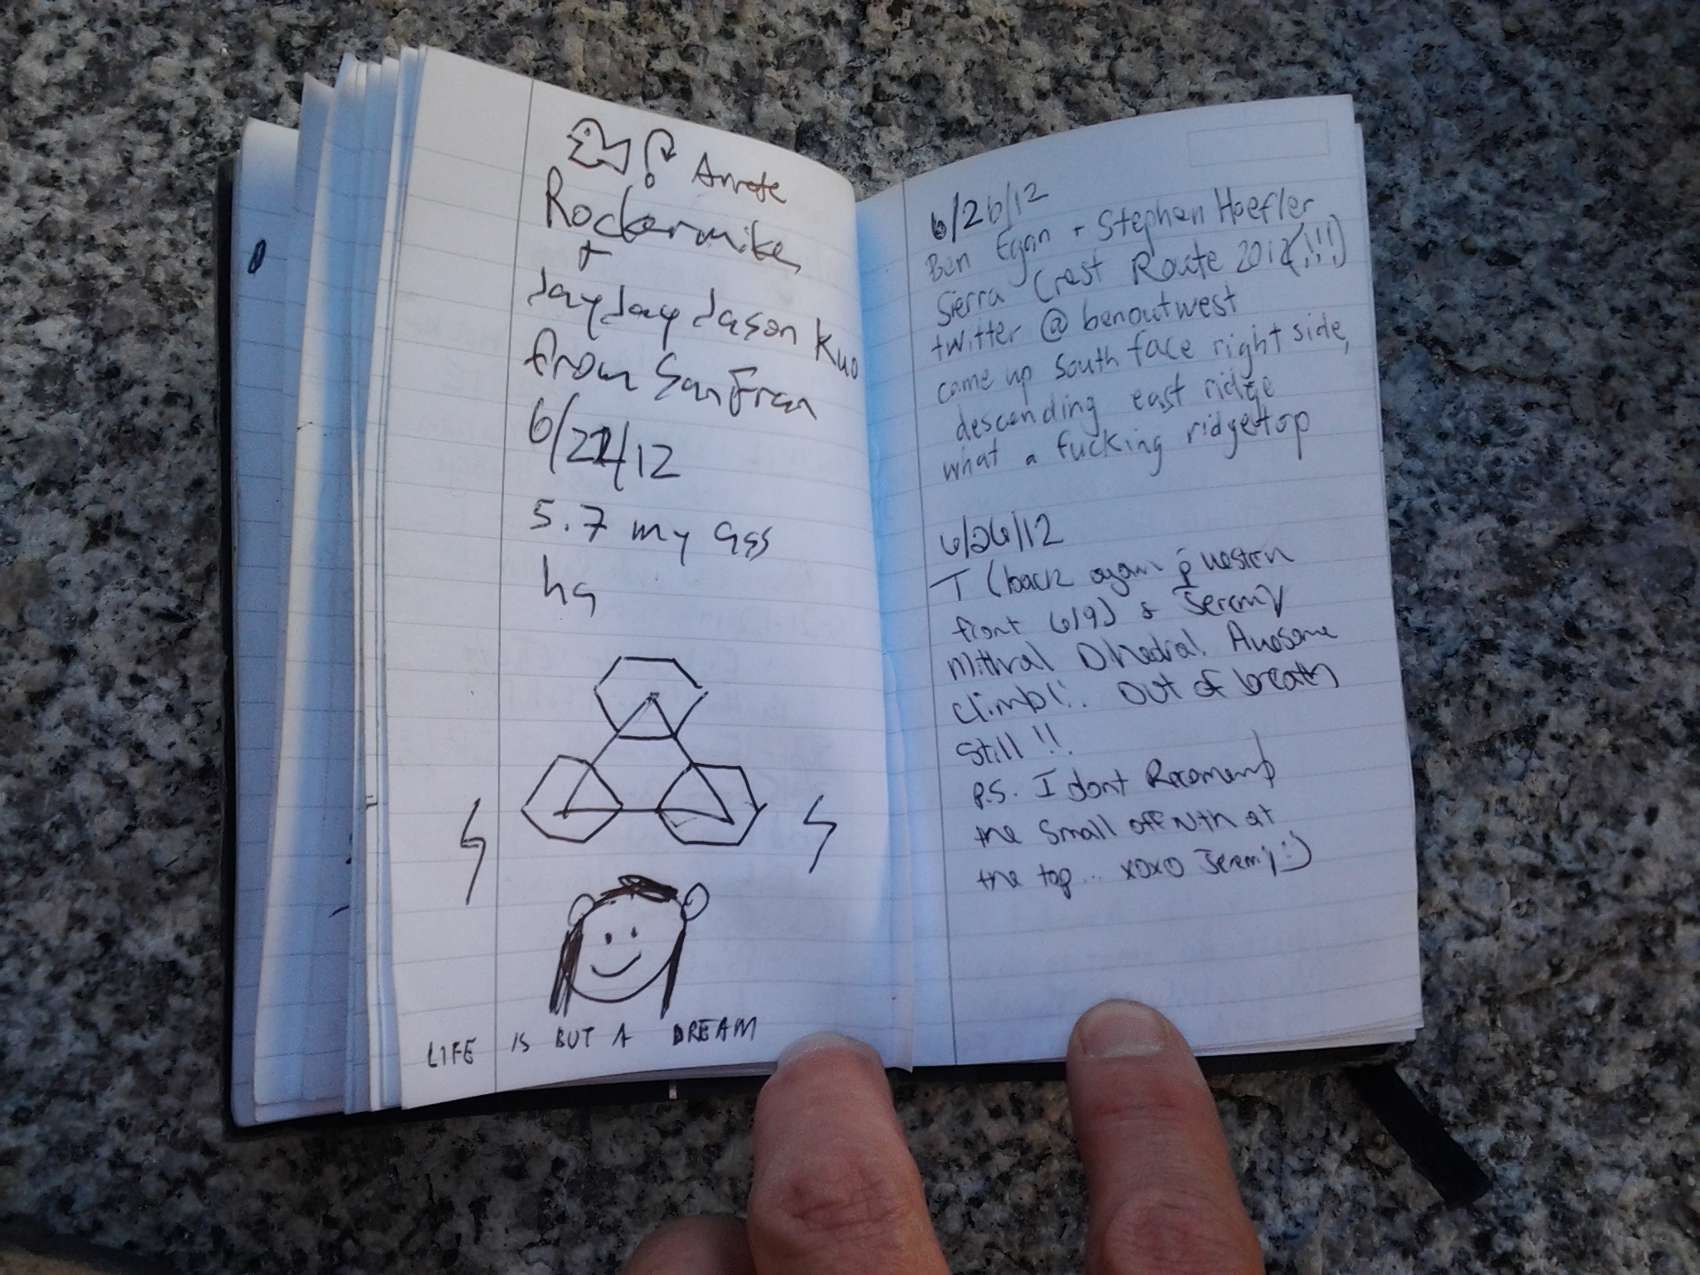 Arrete
Rockermike
+
Jay Jay Jason Kuo
from San Fran
6/21/12
5.7 my ass
ha
LIFE IS BUT A DREAM
6/26/12
Ben Egan + Stephen Hoefler
Sierra Crest Route 2012(!!!)
twitter @benoutwest
came up south face right side,
descending east ridge
what a fucking ridgetop
6/26/12
T (back again western
front 6/9) & Jeremy
Mithral Dihedral. Awesome
climb!! Out of breath
still!!
P.S. I dont Recomend
the small offwith at
the top... xoxo Jeremy :)